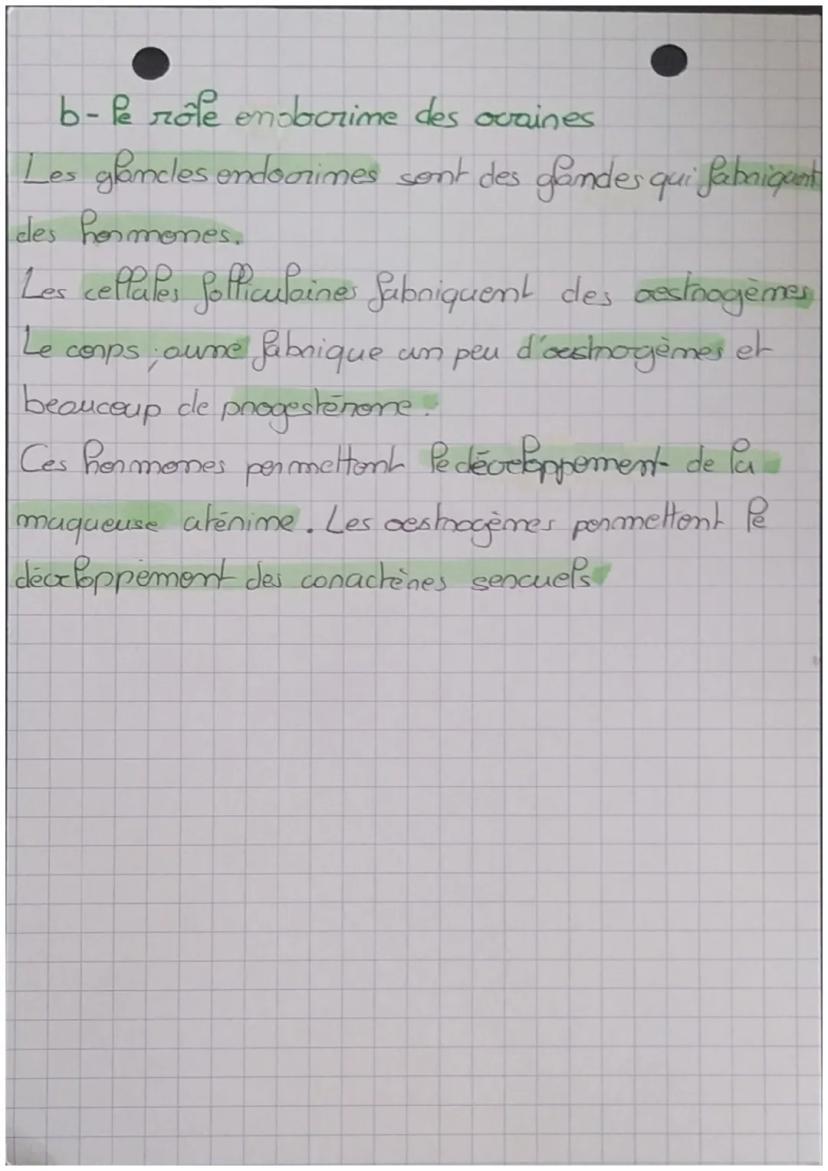 b- le rôle endocrine des ovaires
Les glandes endocrines sont des glandes qui fabriquent
des hormones.
Les cellules folliculaires fabriquent des oestrogènes
Le corps jaune fabrique un peu d'oestrogènes et
beaucoup de progestérone.
Ces hormones permettent le développement de la
muqueuse utérine. Les oestrogènes permettent le
développement des caractères sexuels